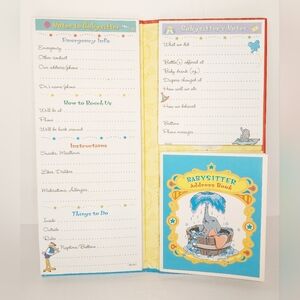 Notes to Babysitter
Emergency Info
Emergency
Other contact
Our address/phone
Dr.'s name/phone
How to Reach Us
Will be at
Phone
Will be back around
Instructions
Snacks, Mealtimes
Likes, Dislikes
Medications, Allergies
Things to Do
Inside
Outside
Baths
Naptime, Bedtime
Babysitter's Notes
What we did
Bottle(s) offered at
Baby drank (oz.)
Diapers changed at
How well we ate
How we behaved
Bedtime
Phone messages
BABYSITTER
Address Book